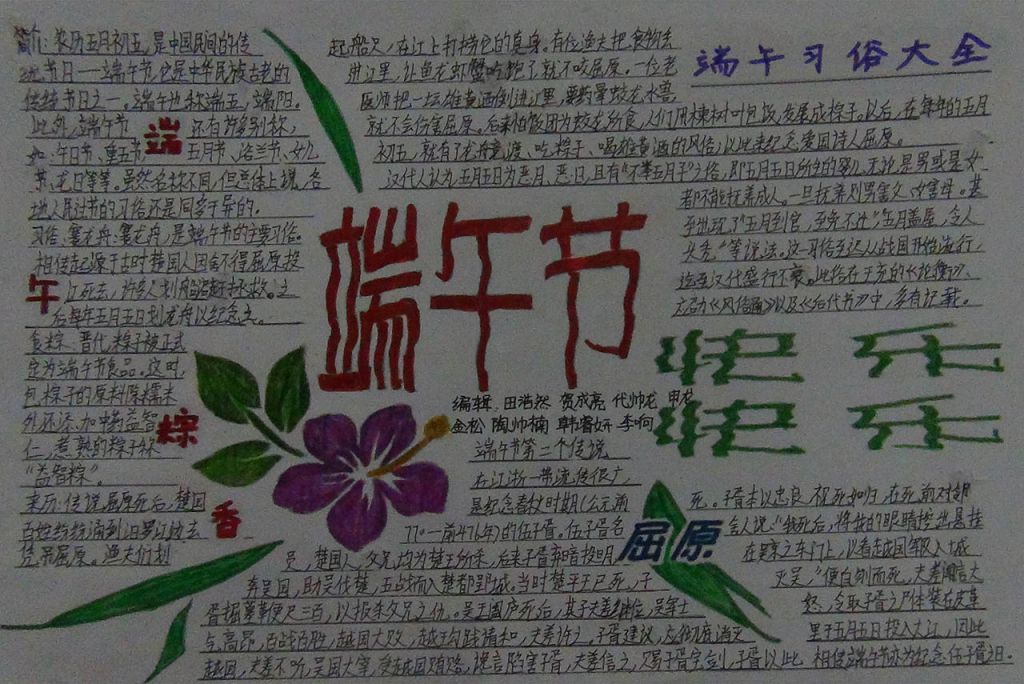 端午习俗大全
简介:农历五月初五,是中国民间的传
统节日——端午节,它是中华民族古老的
传统节日之一。端午也称端五,端阳。
此外,端午节
还有许多别称,
如:午日节、重五节
五月节、浴兰节、女儿
节、龙日等等。虽然名称不同,但总体上说,各
地人民过节的习俗还是同多于异的。
习俗:赛龙舟:赛龙舟,是端午节的主要习俗。
相传起源于古时楚国人因舍不得屈原投
江死去,许多人划船追赶拯救。之
后每年五月五日划龙舟以纪念之。
食粽:晋代,粽子被正式
定为端午节食品。这时,
包粽子的原料除糯米
外还添加中药益智
仁,煮熟的粽子称
“益智粽”。
来历:传说屈原死后,楚国
百姓纷纷涌到汨罗江边去
凭吊屈原。渔夫们划
端
午
粽
香
起船只,在江上打捞他的真身。有位渔夫把食物丢
进江里,让鱼龙虾蟹吃饱了就不咬屈原。一位老
医师把一坛雄黄酒倒进江里,要药晕蛟龙水兽,
就不会伤害屈原。后来怕饭团为蛟龙所食,人们用楝树叶包饭,发展成粽子。以后,在每年的五月
初五,就有了龙舟竞渡、吃粽子、喝雄黄酒的风俗;以此来纪念爱国诗人屈原。
汉代人认为,五月五日为恶月、恶日,且有“不举五月子”之俗,即五月五日所生的婴儿,无论是男或是女
都不能抚养成人。一旦抚养则男害父、女害母。甚
至出现了“五月到官,至免不迁”“五月盖屋,令人
头秃”等说法。这一习俗至迟从战国开始流行,
迄至汉代盛行不衰。此俗在王充的《论衡》、
应劭《风俗通》以及《后代书》中,多有记载。
端午节
快乐
快乐
编辑:田浩然 贾成亮 代帅龙
金松 陶帅楠 韩睿妍 李向
端午节第二个传说
在江浙一带流传很广,
是纪念春秋时期(公元前
770—前476年)的伍子胥。伍子胥名
员,楚国人,父兄均为楚王所杀,后来子胥弃暗投明,
奔吴国,助吴伐楚,五战而入楚都郢城。当时楚平王已死,子
胥掘墓鞭尸三百,以报杀父兄之仇。吴王阖庐死后,其子夫差继位,吴军士
气高昂,百战百胜,越国大败,越王勾践请和,夫差许之。子胥建议,应彻底消灭
越国,夫差不听,吴国大宰,受越国贿赂,谗言陷害子胥,夫差信之,赐子胥宝剑,子胥以此
屈原
死。子胥本以忠良,视死如归,在死前对邻
舍人说:“我死后,将我的眼睛挖出悬挂
在吴京之东门上,以看越国军队入城
灭吴”,便自刎而死,夫差闻言大
怒,令取子胥之尸体装在皮革
里于五月五日投入大江,因此
相传端午节亦为纪念伍子胥之日.